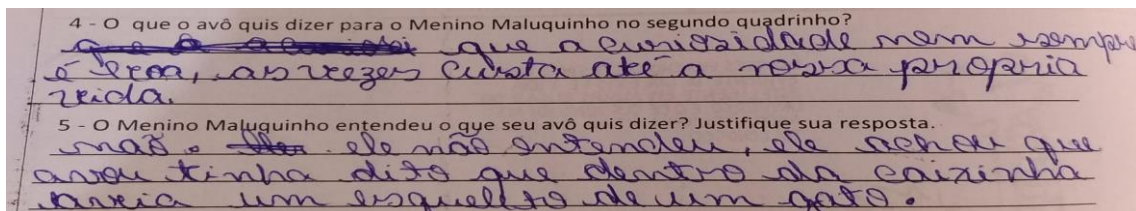 4 - O que o avô quis dizer para o Menino Maluquinho no segundo quadrinho?
que a curiosidade nem sempre
é boa, as vezes custa até a nossa propria
vida.
5 - O Menino Maluquinho entendeu o que seu avô quis dizer? Justifique sua resposta.
não. ele não entendeu, ele achou que
avou tinha dito que dentro da caixinha
havia um esqueleto de um gato.